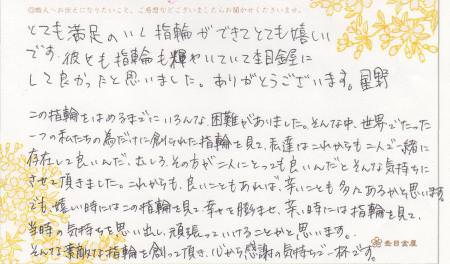 ◎職人へお伝えになりたいこと、ご感想などございましたらお聞かせくださいませ。
とても満足のいく指輪ができてとても嬉しい
です。彼とも指輪も輝やいていて杢目金屋に
して良かったと思いました。ありがとうございます。星野
この指輪をはめるまでにいろんな、困難がありました。そんな中、世界でたった
一つの私たちの為だけに創られた指輪を見て、私達はこれからも二人で一緒に
存在して良いんだ、むしろ、その方が二人にとっても良いんだとそんな気持ちに
させて頂きました。これからも、良いこともあれば、辛いことも多々あるかと思います。
でも、嬉しい時にはこの指輪を見て幸せを膨ませ、辛い時には指輪を見て、
当時の気持ちを思い出し、頑張っていけることかと思います。
そんな素敵な指輪を創って頂き、心から感謝の気持ちで一杯です。
杢目金屋